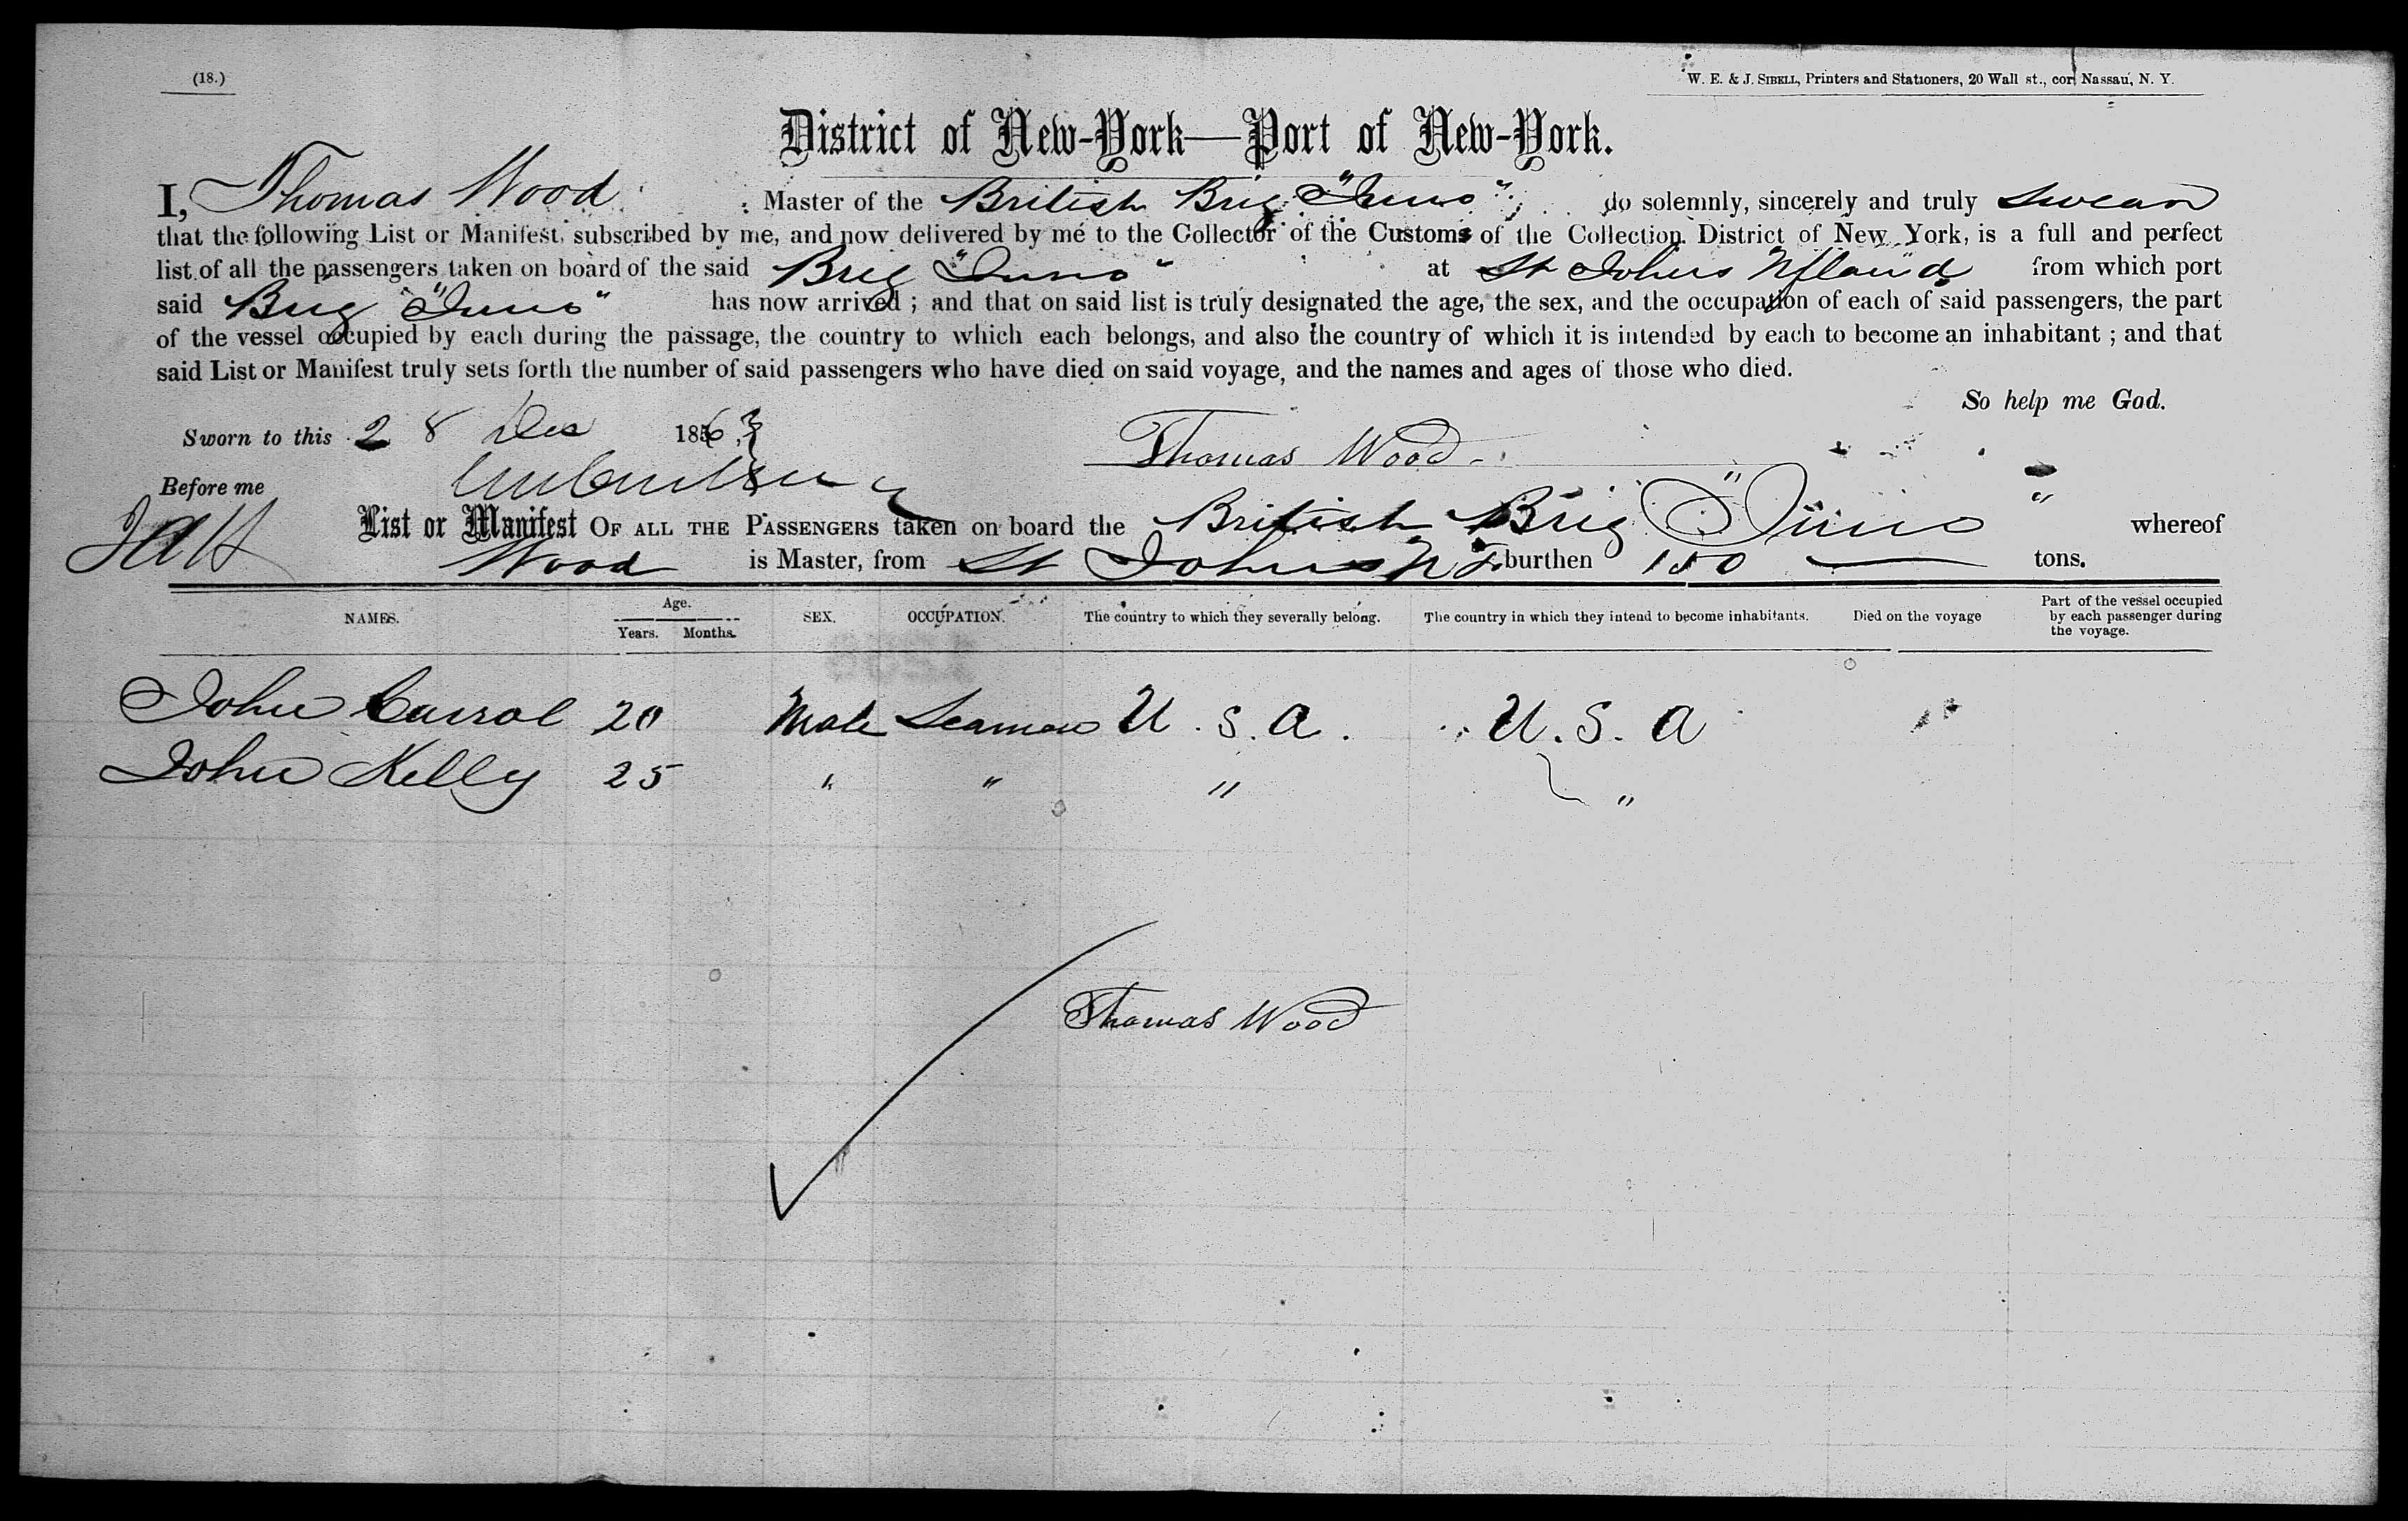 (18.)
W. E. & J. SIBELL, Printers and Stationers, 20 Wall st., cor. Nassau, N. Y.
District of New-York—Port of New-York.
I, Thomas Wood Master of the British Brig "Juno" do solemnly, sincerely and truly swear
that the following List or Manifest, subscribed by me, and now delivered by me to the Collector of the Customs of the Collection District of New York, is a full and perfect
list of all the passengers taken on board of the said Brig "Juno" at St Johns Nfland from which port
said Brig "Juno" has now arrived ; and that on said list is truly designated the age, the sex, and the occupation of each of said passengers, the part
of the vessel occupied by each during the passage, the country to which each belongs, and also the country of which it is intended by each to become an inhabitant ; and that
said List or Manifest truly sets forth the number of said passengers who have died on said voyage, and the names and ages of those who died.
So help me God.
Sworn to this 28 Dec 1863
Thomas Wood
Before me
List or Manifest OF ALL THE PASSENGERS taken on board the British Brig "Juno" whereof
Wood is Master, from St Johns N F burthen 150 tons.
NAMES. Age. Years. Months. SEX. OCCUPATION. The country to which they severally belong. The country in which they intend to become inhabitants. Died on the voyage Part of the vessel occupied by each passenger during the voyage.
John Carrol 20 Male Seaman U.S.A. U.S.A
John Kelly 25 " " " "
Thomas Wood